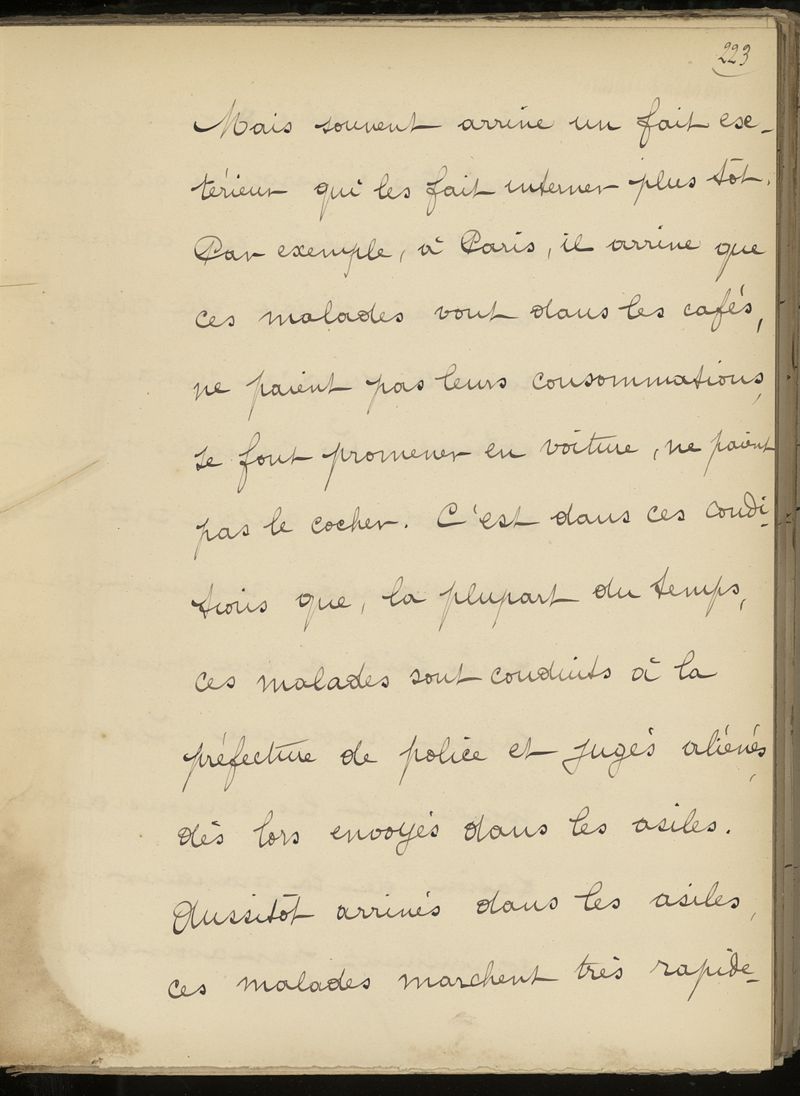 223
Mais souvent arrive un fait ex-
térieur qui les fait interner plus tôt.
Par exemple, à Paris, il arrive que
ces malades vont dans les cafés,
ne paient pas leurs consommations,
se font promener en voiture, ne paient
pas le cocher. C'est dans ces condi-
tions que, la plupart du temps,
ces malades sont conduits à la
préfecture de police et jugés aliénés,
dès lors envoyés dans les asiles.
Aussitôt arrivés dans les asiles,
ces malades marchent très rapide-